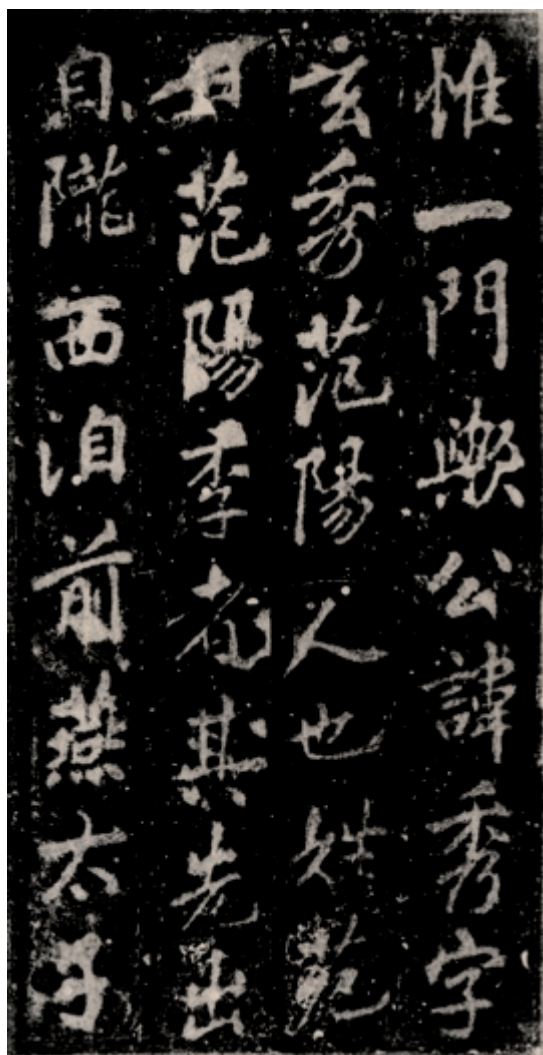 惟一門歟公諱秀字
玄秀范陽人也姓苑
曰范陽李老其先出
自隴西洎前燕太子